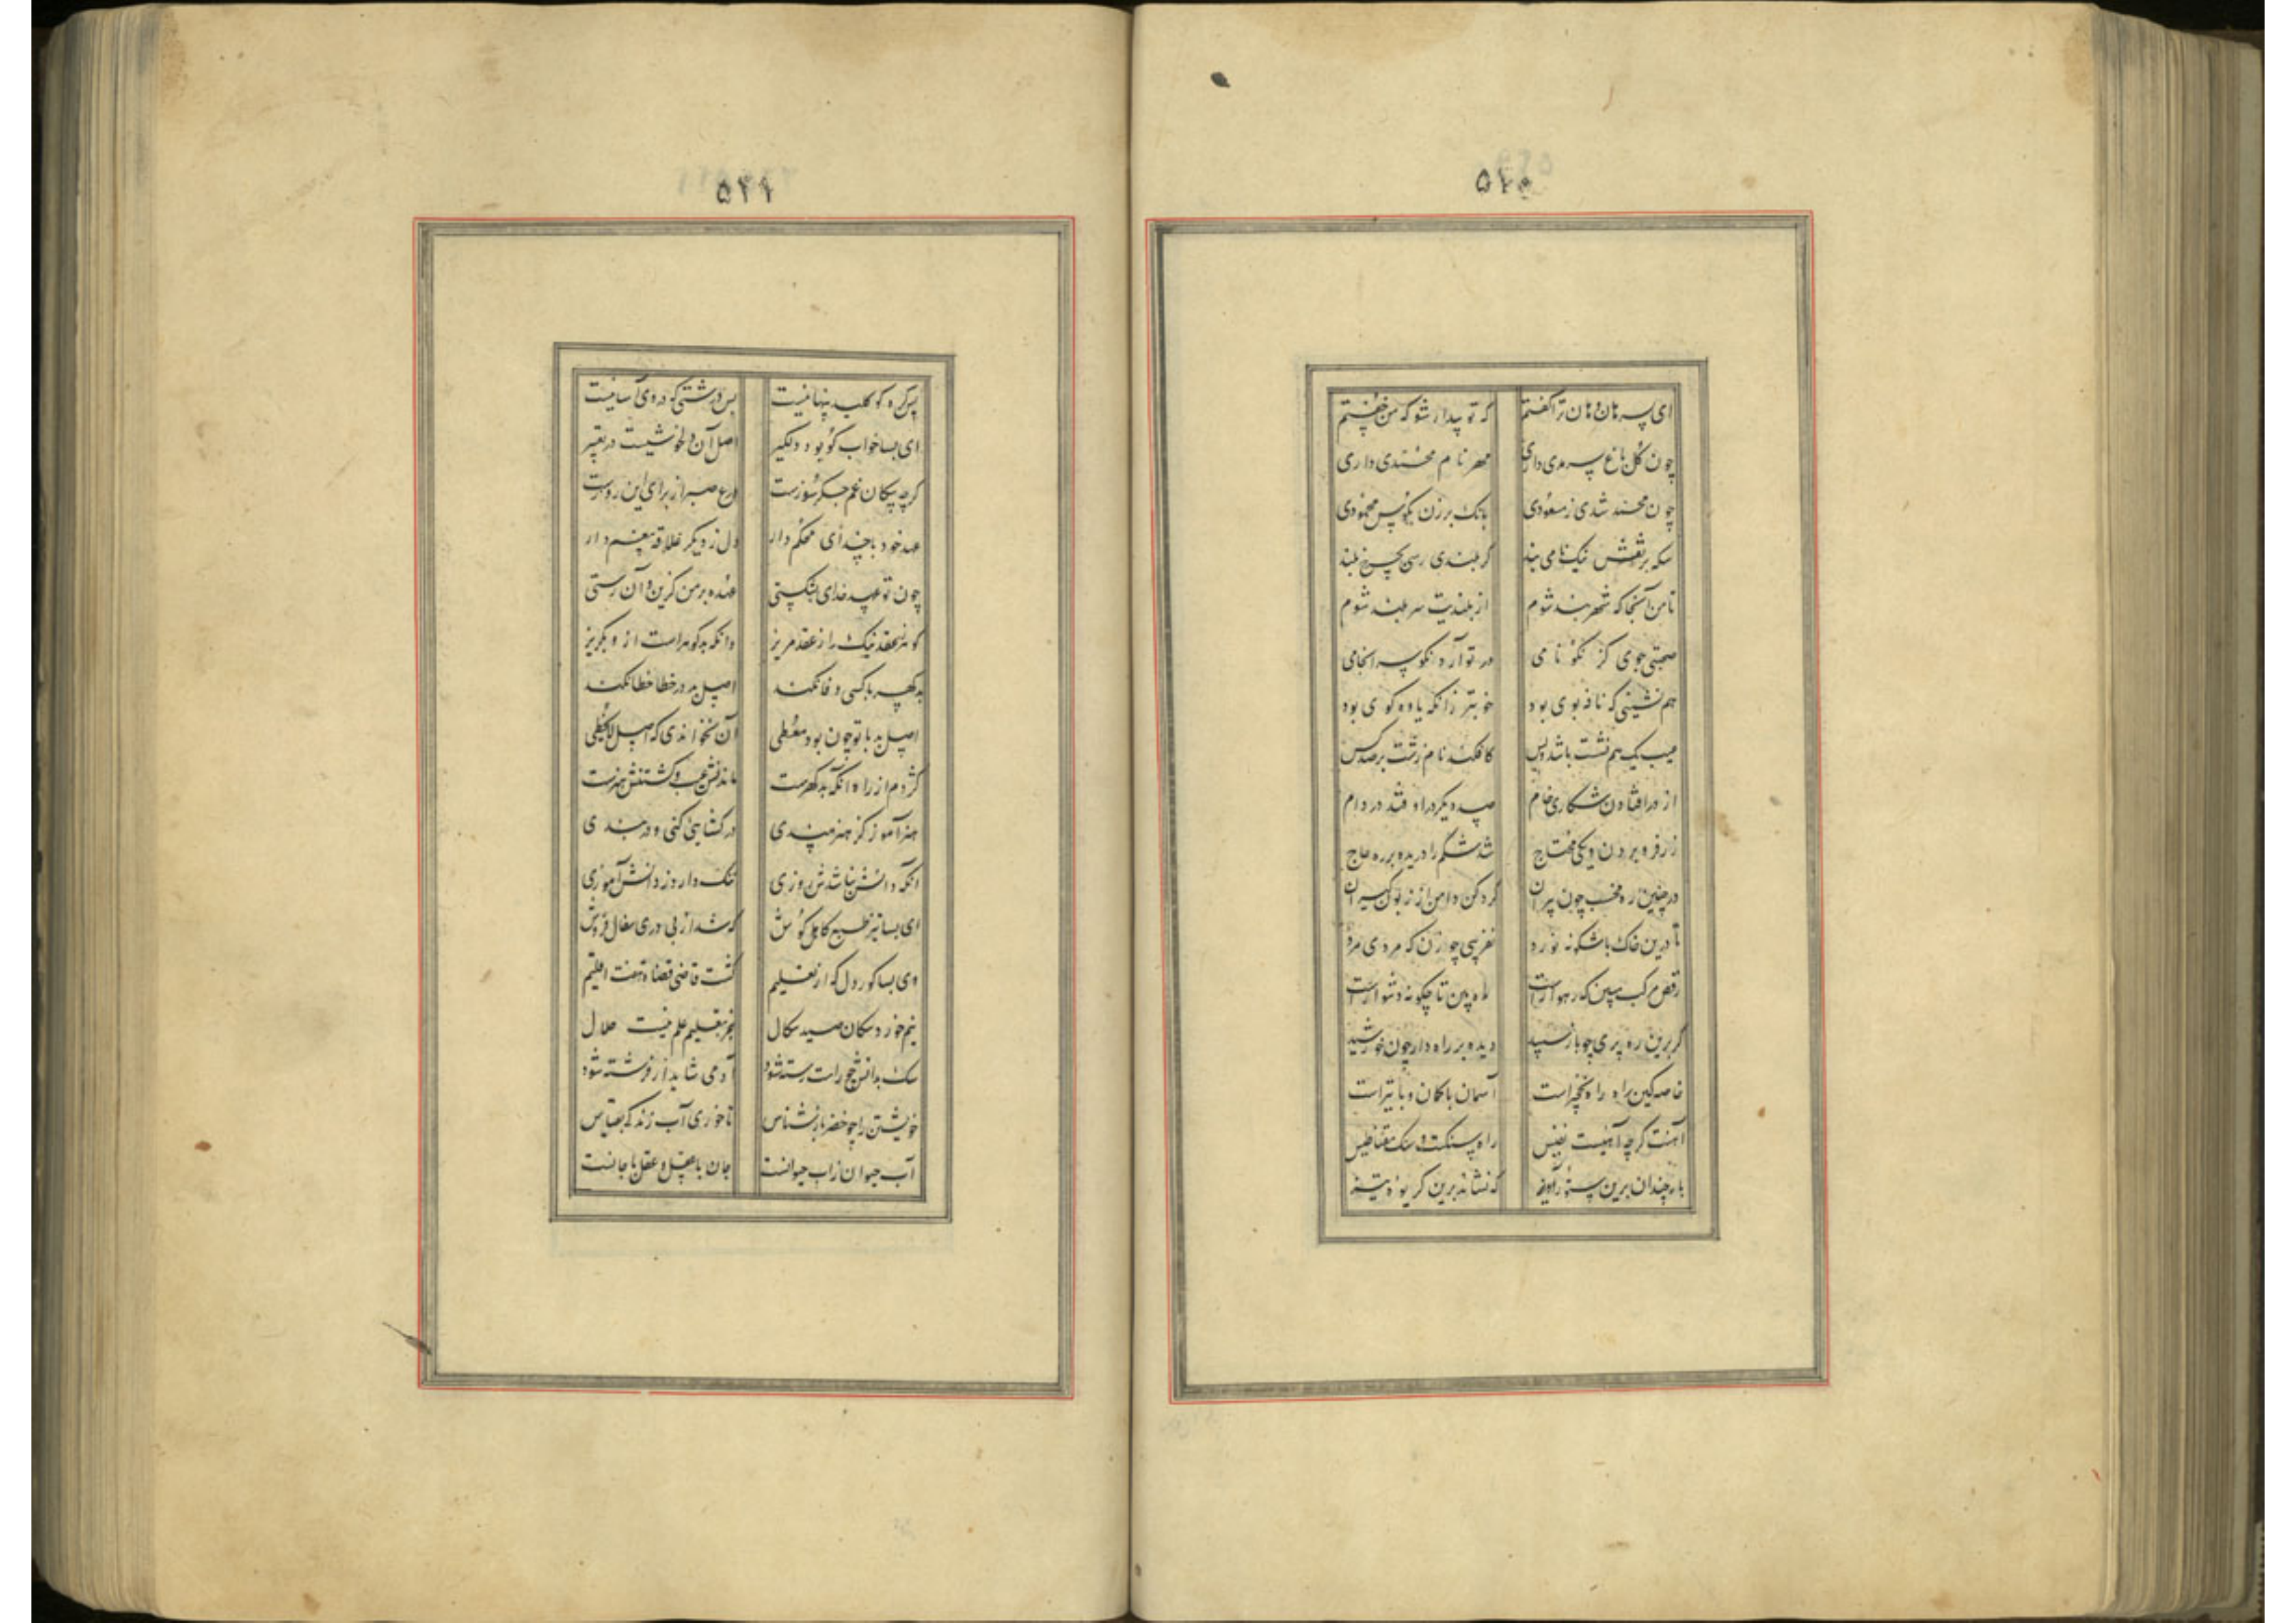 ای پسر هان و هان ترا گفتم که تو بیدار شو که من خفتم
چون گل باغ سرمدی داری مهر نام محمدی داری
چون محمد شدی ز مسعودی بانک برزن بکوس محمودی
سکه بر نقش نیک نامی بند کز بلندی رسی بچرخ بلند
تا من آنجا که شهربند شوم از بلندیت سربلند شوم
صحبتی جوی کز نکو نامی در تو آرد نکو سرانجامی
هم نشینی که نافه بوی بود خوبتر زانکه یاوه کوی بود
عیب یک هم نشست باشد و بس کافکند نام زشت بر صد کس
از در افتادن شکاری خام صد دیگر در اوفتد در دام
زر فرو بردن یکی محتاج شد شکم را دریده بر ره حاج
در چنین ره مخسب چون پیران کرد کن دامن از زبون گیران
تا درین خاک باشکونه نورد نفریبی چو زن که مردی مرد
رقص مرکب مبین که رهوار است راه بین تا چگونه دشوار است
گر برین ره پری چو باز سپید دیده بر راه دار چون خورشید
خاصه کین راه راه نخچیر است آسمان با کمان و با تیر است
آهنت گرچه آهنیست نفیس راه سنگست و سنگ مغناطیس
بار چندان برین ستور آویز که نشاند برین کریوه تیز
بس گره کو کلید پنهانیست بس درشتی که در وی آسانیست
ای بسا خواب کو بود دلگیر اصل آن دلخوشیست در تعبیر
گرچه پیکان غم جگر دوزست درع صبر از برای این روزست
عهد خود با خدای محکم دار دل ز دیگر علاقه بیغم دار
چون تو عهد خدای نشکستی عهده بر من کزین و آن رستی
گوهر عقد نیک را ز عقد مریز وانکه بدگوهر است ازو بگریز
بدگهر با کسی وفا نکند اصل بد در خطا خطا نکند
اصل بد با تو چون بود معطی آن نخواندی که اصل لایخطی
کژدم از راه آنکه بدگهرست ماندنش عیب و کشتنش هنرست
هنر آموز کز هنرمندی در گشایی کنی و دربندی
آنکه دانش نباشدش روزی ننگ دارد ز دانش آموزی
ای بسا تیز طبع کاهل کوش که شد از بی دری سفال فروش
وی بسا کور دل که از تعلیم گشت قاضی قضاة هفت اقلیم
نیم خورد سگان صید سگال جز بتعلیم علم نیست حلال
سگ بدانش چو راست رشته شود آدمی شاید ار فرشته شود
خویشتن را چو خضر باز شناس تا خوری آب زندگی بقیاس
آب حیوان نه آب حیوانست جان با عقل و عقل با جانست